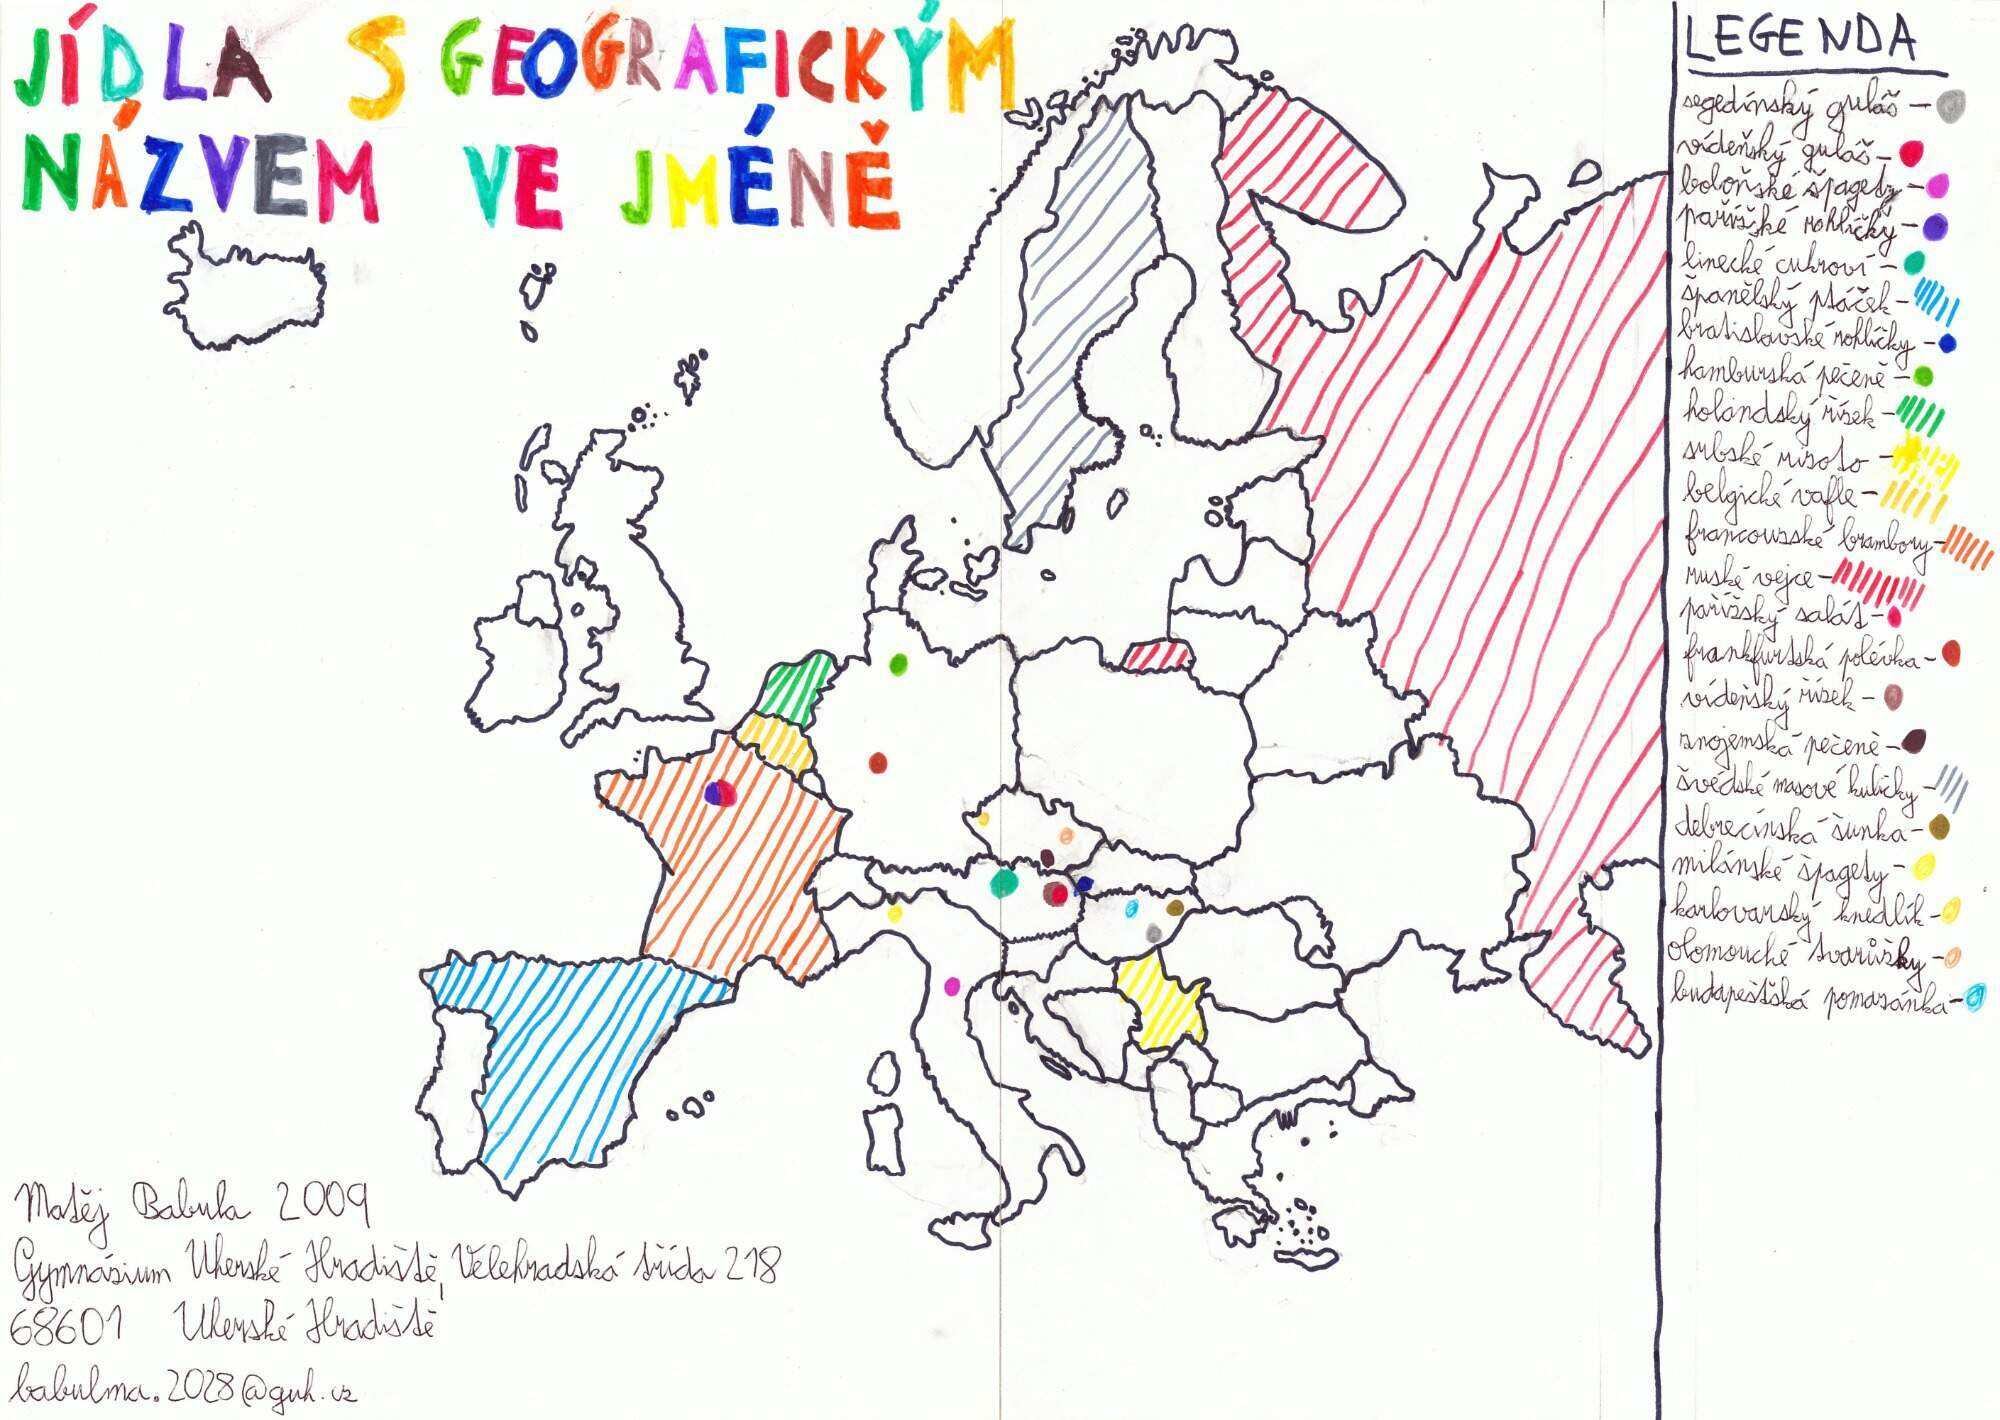 JÍDLA S GEOGRAFICKÝM
NÁZVEM VE JMÉNĚ
LEGENDA
segedínský guláš -
vídeňský guláš -
boloňské špagety -
pařížské rohlíčky -
linecké cukroví -
španělský ptáček -
bratislavské rohlíčky -
hamburská pečeně -
holandský řízek -
srbské rizoto -
belgické vafle -
francouzské brambory -
ruské vejce -
pařížský salát -
frankfurtská polévka -
vídeňský řízek -
znojemská pečeně -
švédské masové kuličky -
debrecínská šunka -
milánské špagety -
karlovarský knedlík -
olomoucké tvarůžky -
budapešťská pomazánka -
Matěj Babula 2009
Gymnázium Uherské Hradiště, Velehradská třída 218
68601 Uherské Hradiště
babulma.2028@guh.cz